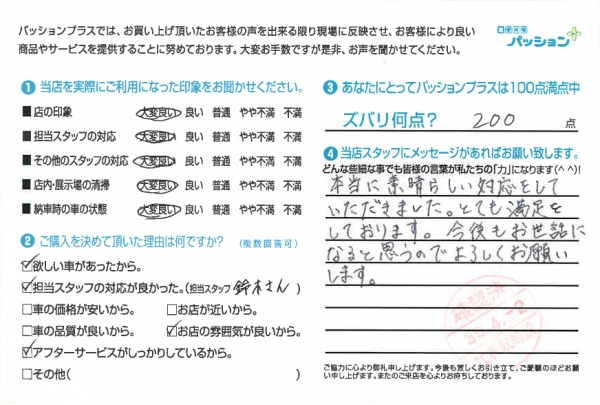 パッションプラスでは、お買い上げ頂いたお客様の声を出来る限り現場に反映させ、お客様により良い
商品やサービスを提供することに努めております。大変お手数ですが是非、お声を聞かせてください。
パッション
① 当店を実際にご利用になった印象をお聞かせください。
■店の印象 大変良い 良い 普通 やや不満 不満
■担当スタッフの対応 大変良い 良い 普通 やや不満 不満
■その他のスタッフの対応 大変良い 良い 普通 やや不満 不満
■店内・展示場の清掃 大変良い 良い 普通 やや不満 不満
■納車時の車の状態 大変良い 良い 普通 やや不満 不満
② ご購入を決めて頂いた理由は何ですか? (複数回答可)
☑欲しい車があったから。
☑担当スタッフの対応が良かった。(担当スタッフ 鈴木さん )
□車の価格が安いから。 □お店が近いから。
□車の品質が良いから。 ☑お店の雰囲気が良いから。
☑アフターサービスがしっかりしているから。
□その他( )
③ あなたにとってパッションプラスは100点満点中
ズバリ何点? 200 点
④ 当店スタッフにメッセージがあればお願い致します。
どんな些細な事でも皆様の言葉が私たちの「力」になります(^^)!
本当に素晴らしい対応をして
いただきました。とても満足を
しております。今後もお世話に
なると思うのでよろしくお願い
します。
ご協力に心より御礼申し上げます。今後も宜しくお引き立て、ご愛顧のほどお願
い申し上げます。またのご来店を心よりお待ちしております。